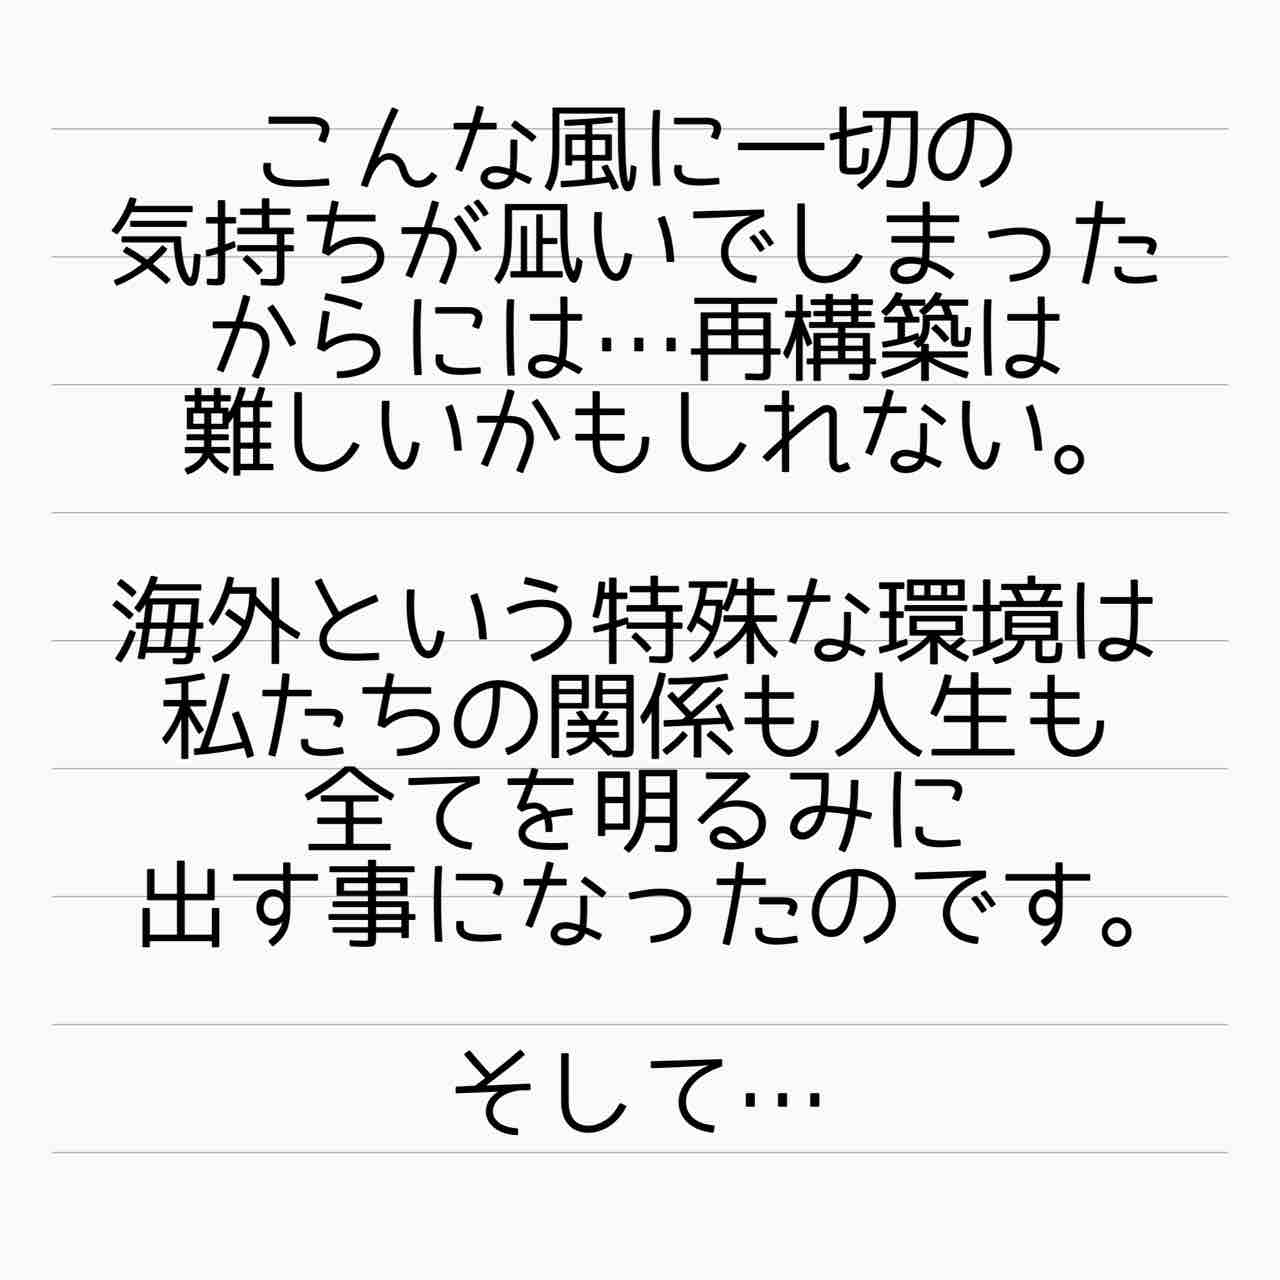 こんな風に一切の
気持ちが凪いでしまった
からには…再構築は
難しいかもしれない。
海外という特殊な環境は
私たちの関係も人生も
全てを明るみに
出す事になったのです。
そして…